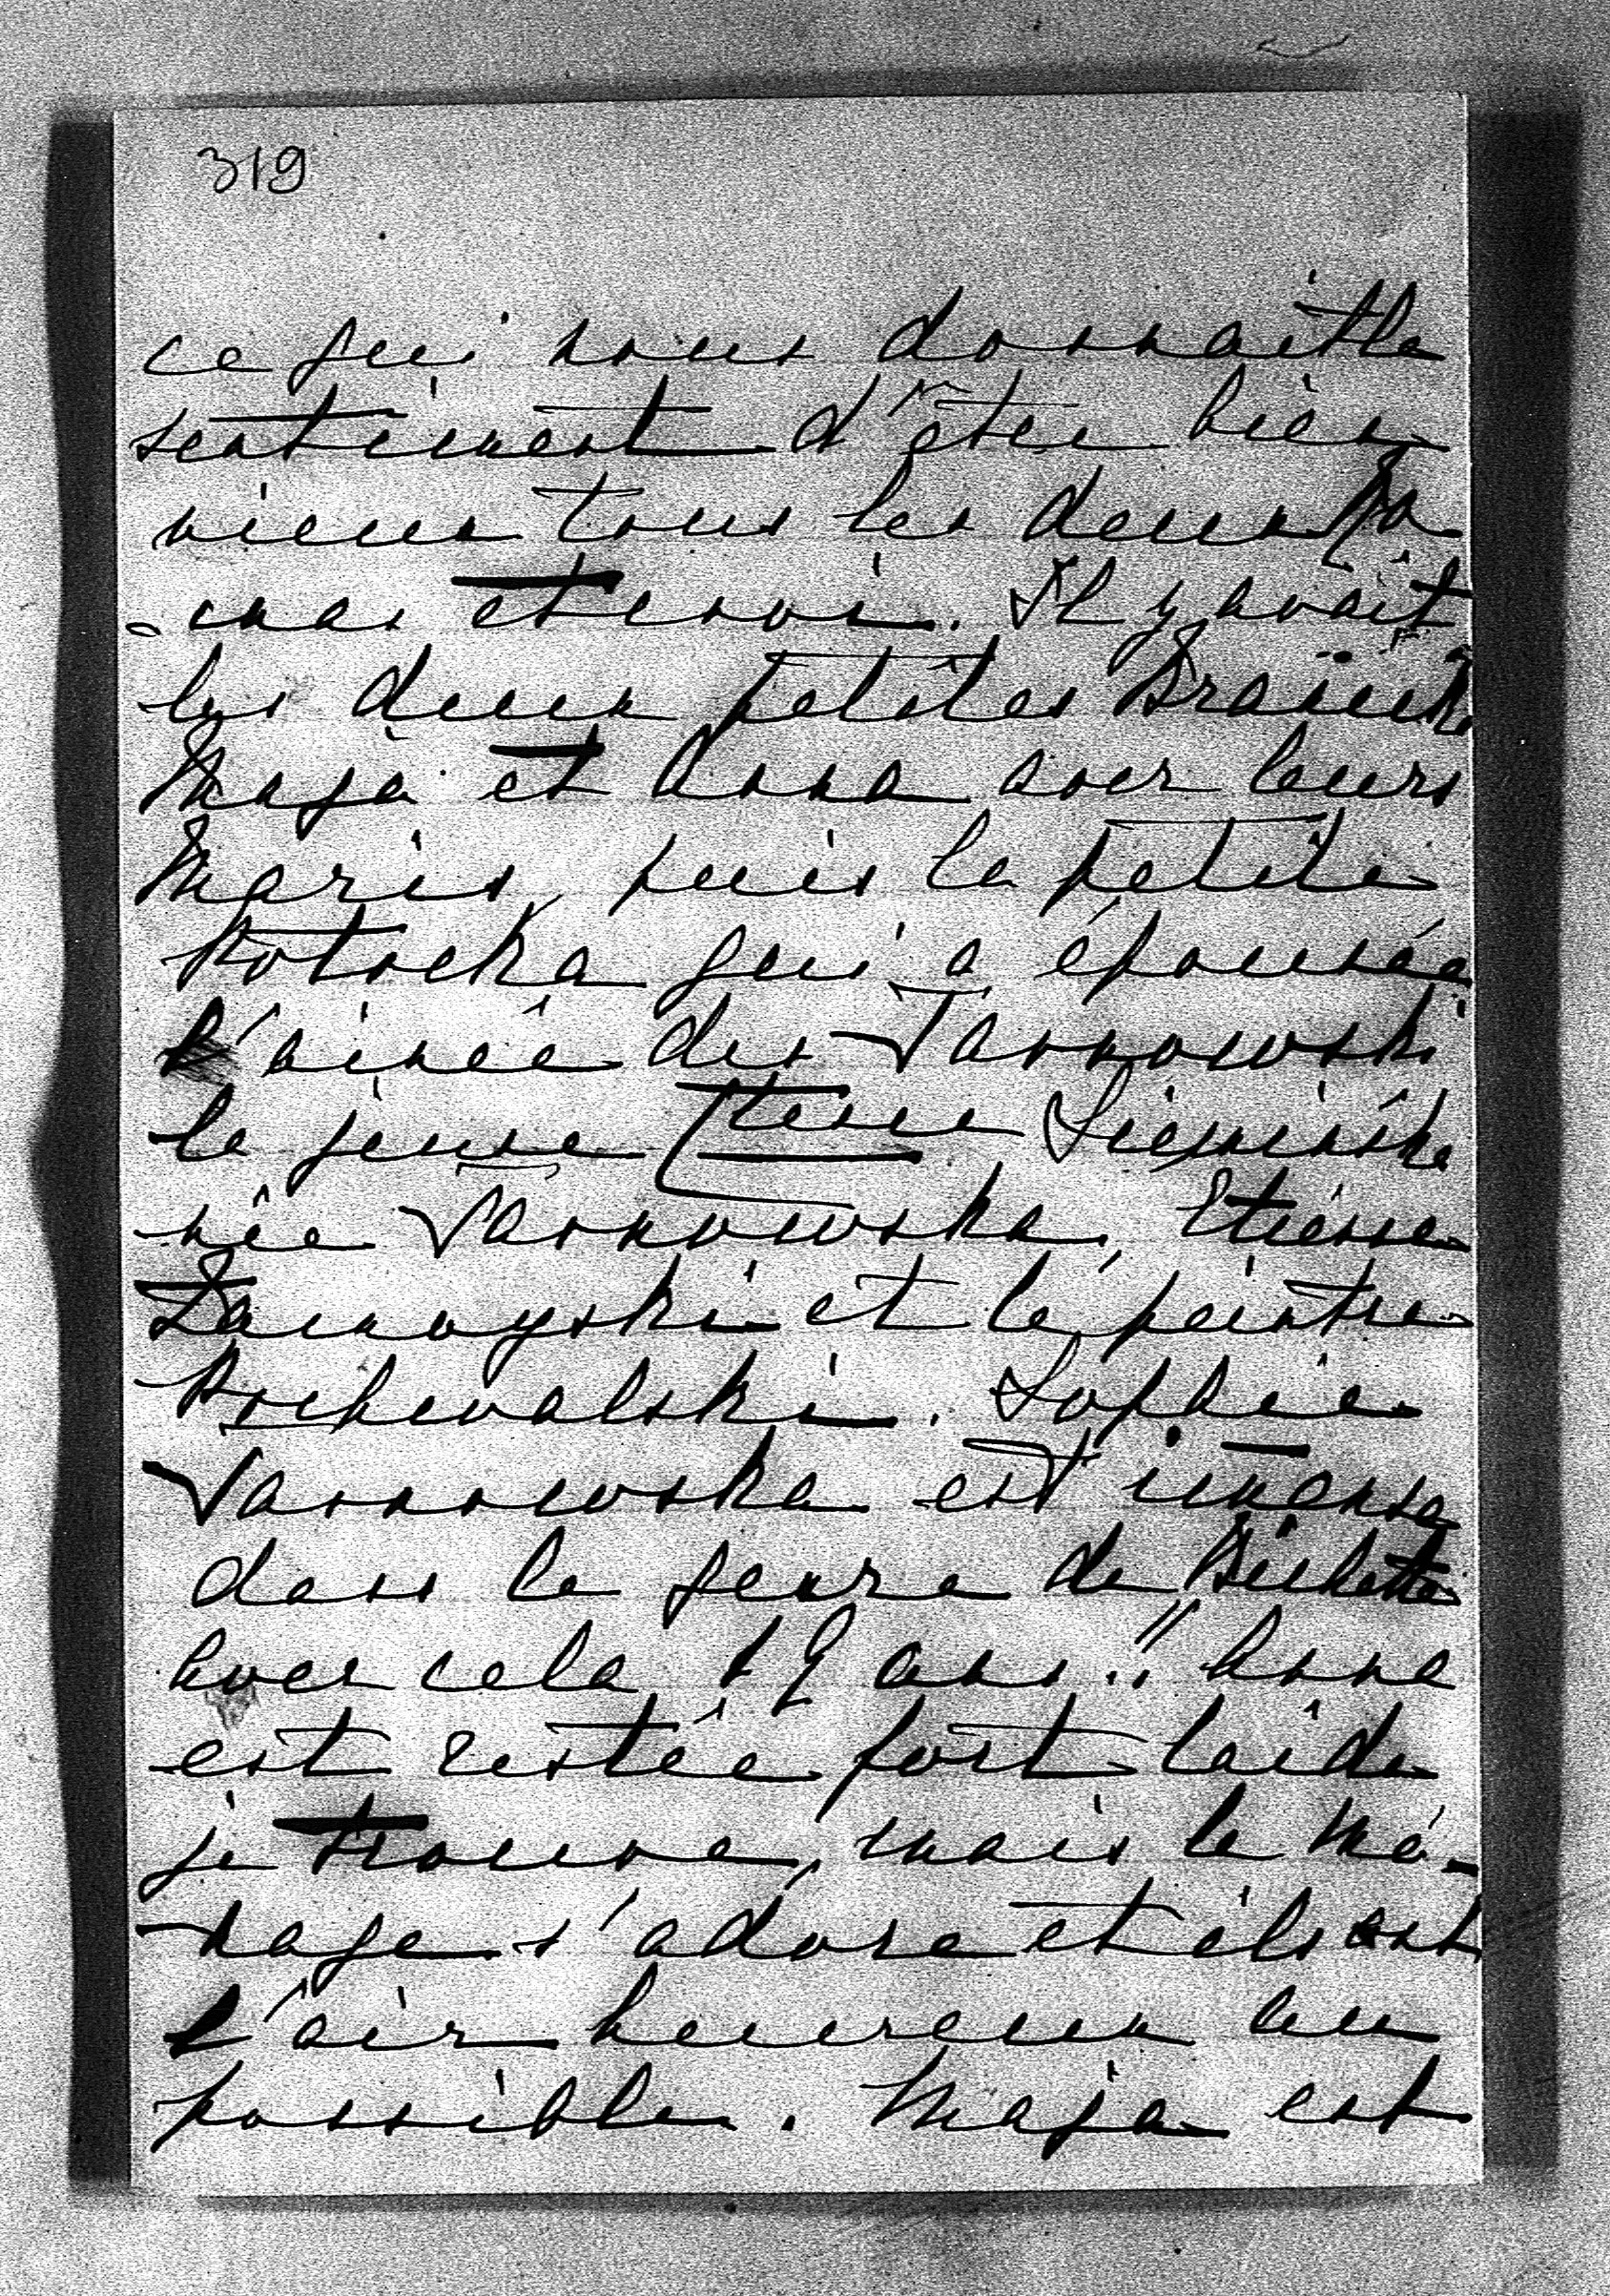 319
ce qui nous donnait le
sentiment d'être bien
vieux tous les deux Ro
-mas et moi. Il y avait
les deux petites Branicka
Maja et Anna avec leurs
Maris, puis la petite
Potocka qui a épousée
l'ainée des Tarnowski
la jeune Siemienska
née Tarnowska, Etienne
Zamoyski et le peintre
Pochwalski. Sophie
Tarnowska est imense
dans le genre de Bichette
avec cela 19 ans!! Anna
est restée fort laide
je trouve, mais le mé-
nage s'adore et ils ont
l'air heureux au
possible. Maja est